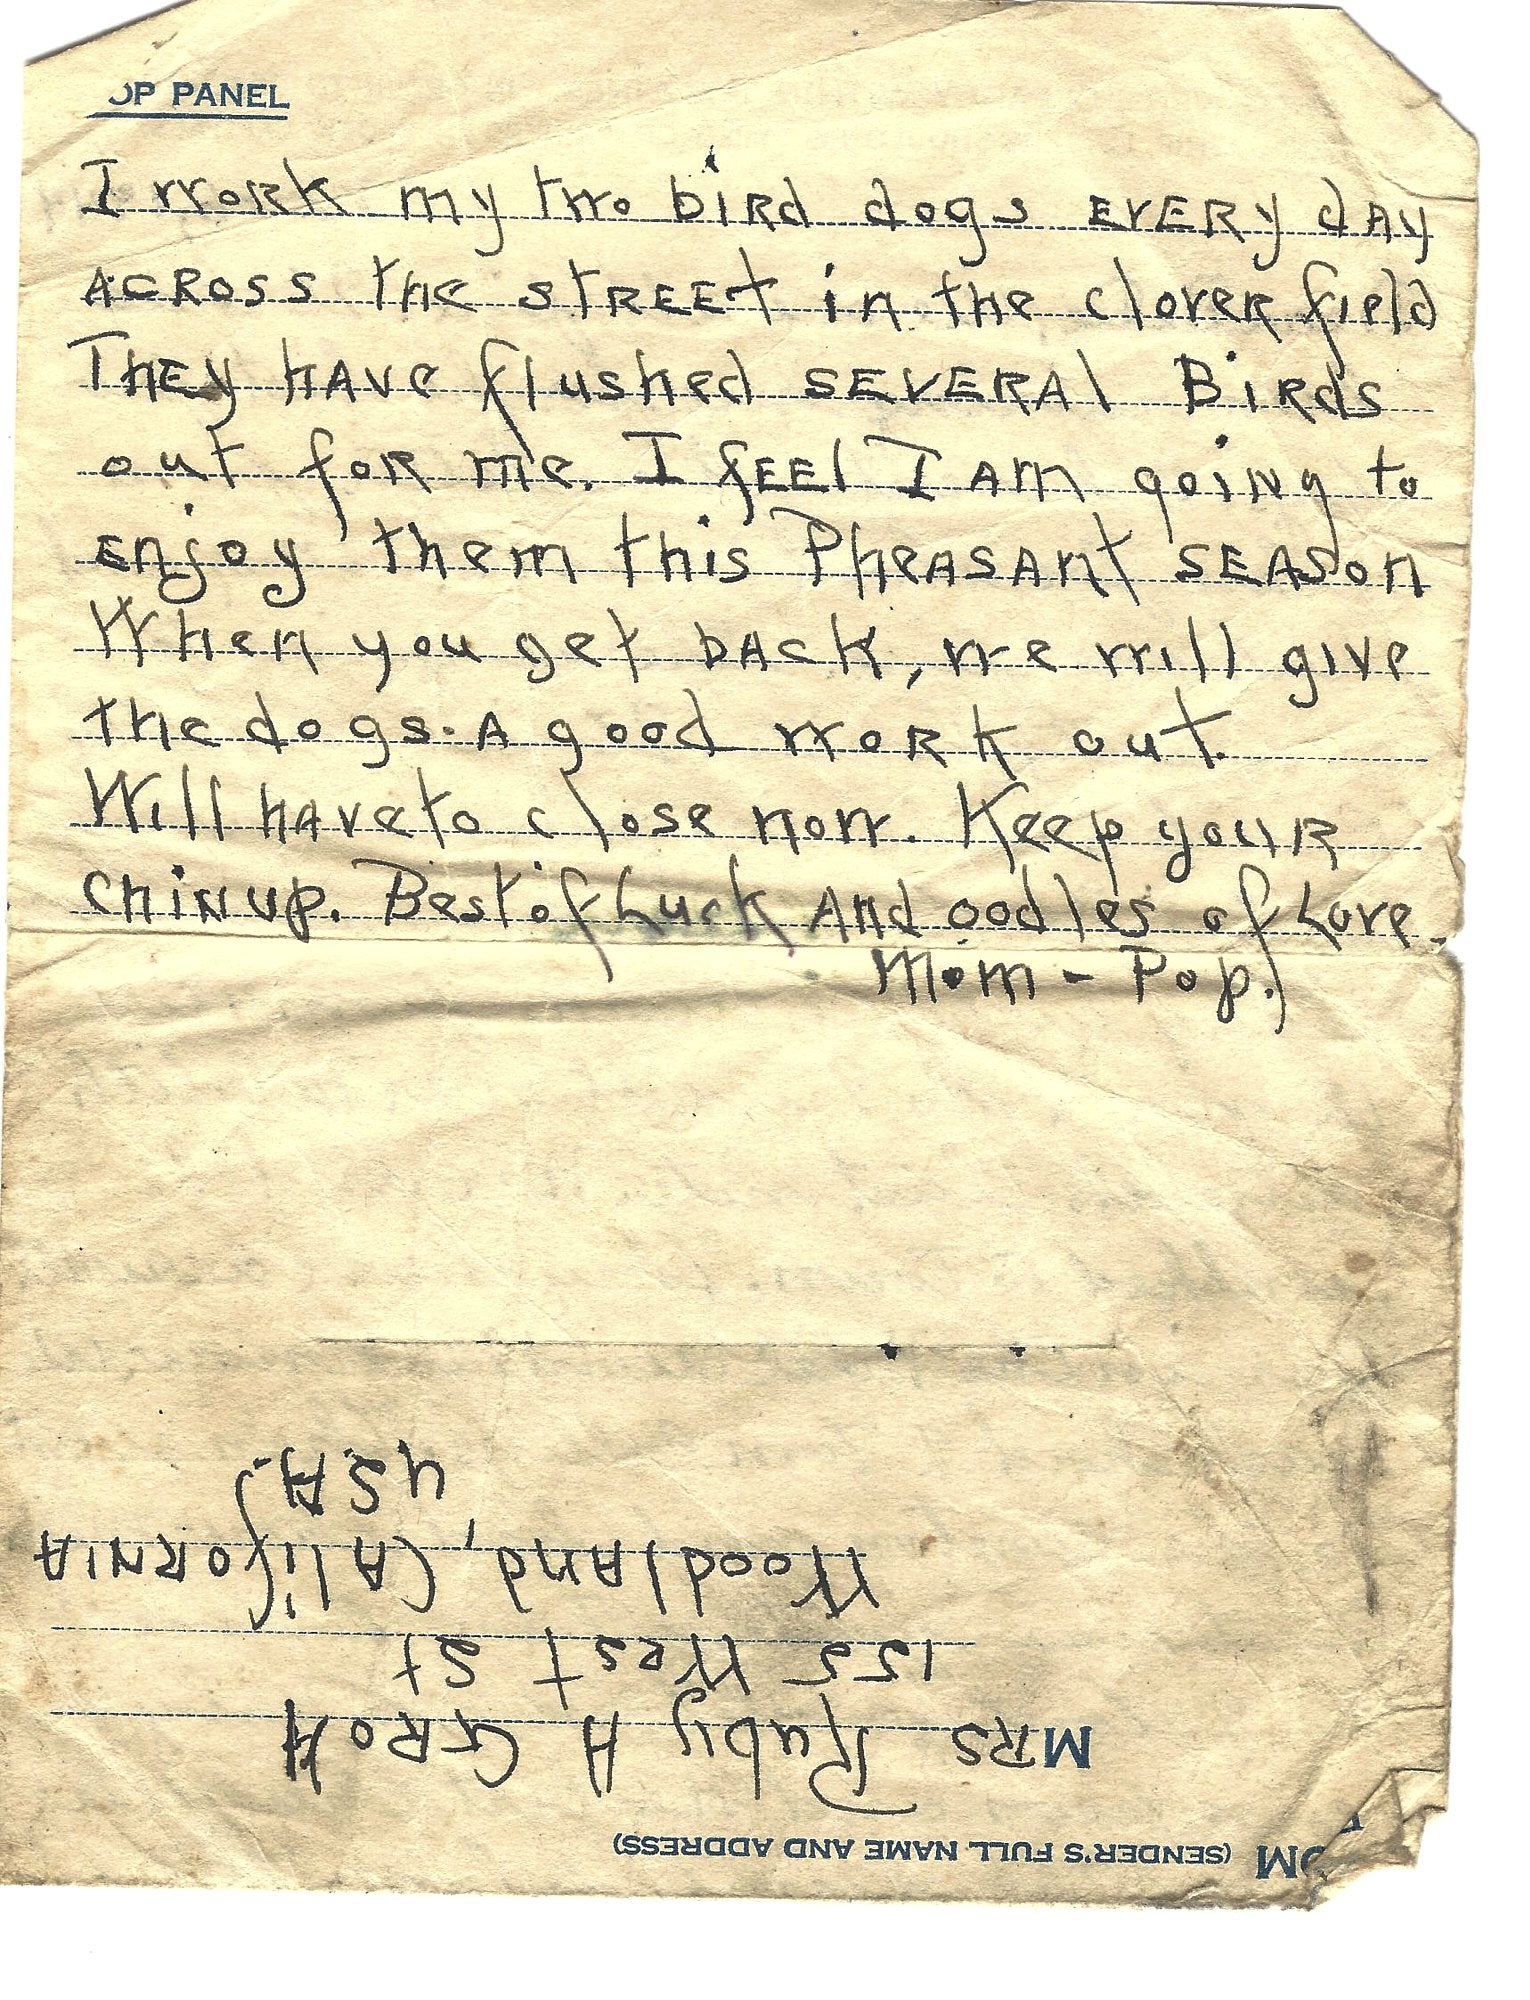 OP PANEL
I work my two bird dogs EVERY dAY
ACROSS the STREET in the clover field
They HAVE flushed SEVERAL Birds
out for me. I fEEl I Am goiNg to
ENjoy them this PheASAnt SEASon
When you get bAck, we will give
the dogs. A good work out.
Will HAve to close now. Keep youR
chiN up. Best of Luck And oodles of Love.
Mom - Pop.
USA.
WoodlAnd, CAlifORNIA
155 West St
MRS Ruby A GRoH
OM (SENDER'S FULL NAME AND ADDRESS)